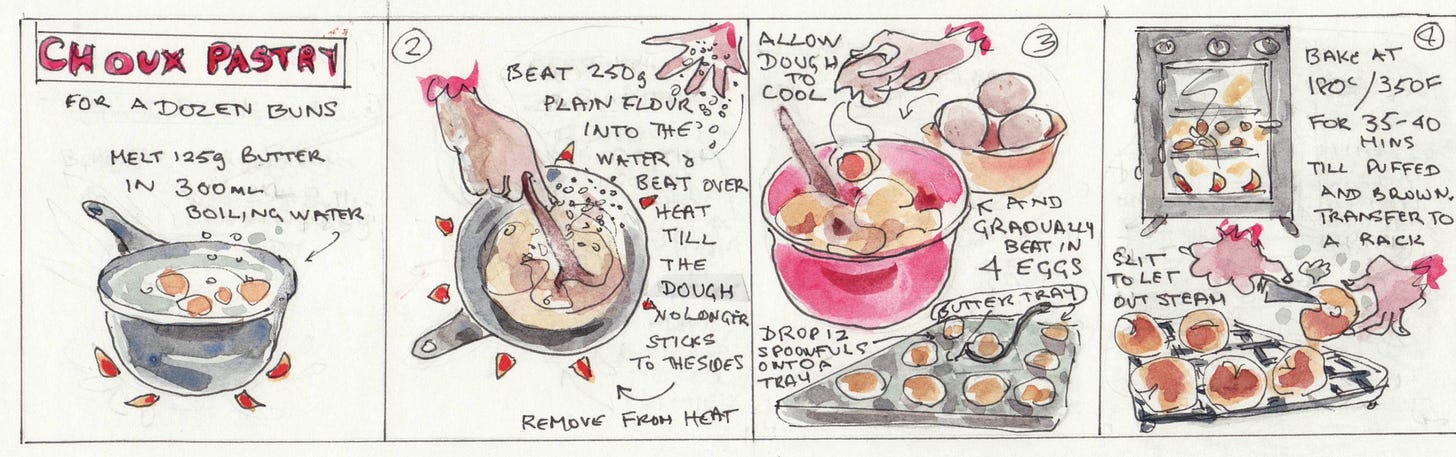 CHOUX PASTRY
FOR A DOZEN BUNS
MELT 125g BUTTER
IN 300ML
BOILING WATER
2
BEAT 250g
PLAIN FLOUR
INTO THE
WATER &
BEAT OVER
HEAT
TILL
THE
DOUGH
NO LONGER
STICKS
TO THE SIDES
REMOVE FROM HEAT
3
ALLOW
DOUGH
TO
COOL
AND
GRADUALLY
BEAT IN
4 EGGS
BUTTER TRAY
DROP 12
SPOONFULS
ONTO A
TRAY
4
BAKE AT
180c/350F
FOR 35-40
MINS
TILL PUFFED
AND BROWN.
TRANSFER TO
A RACK
SLIT
TO LET
OUT STEAM